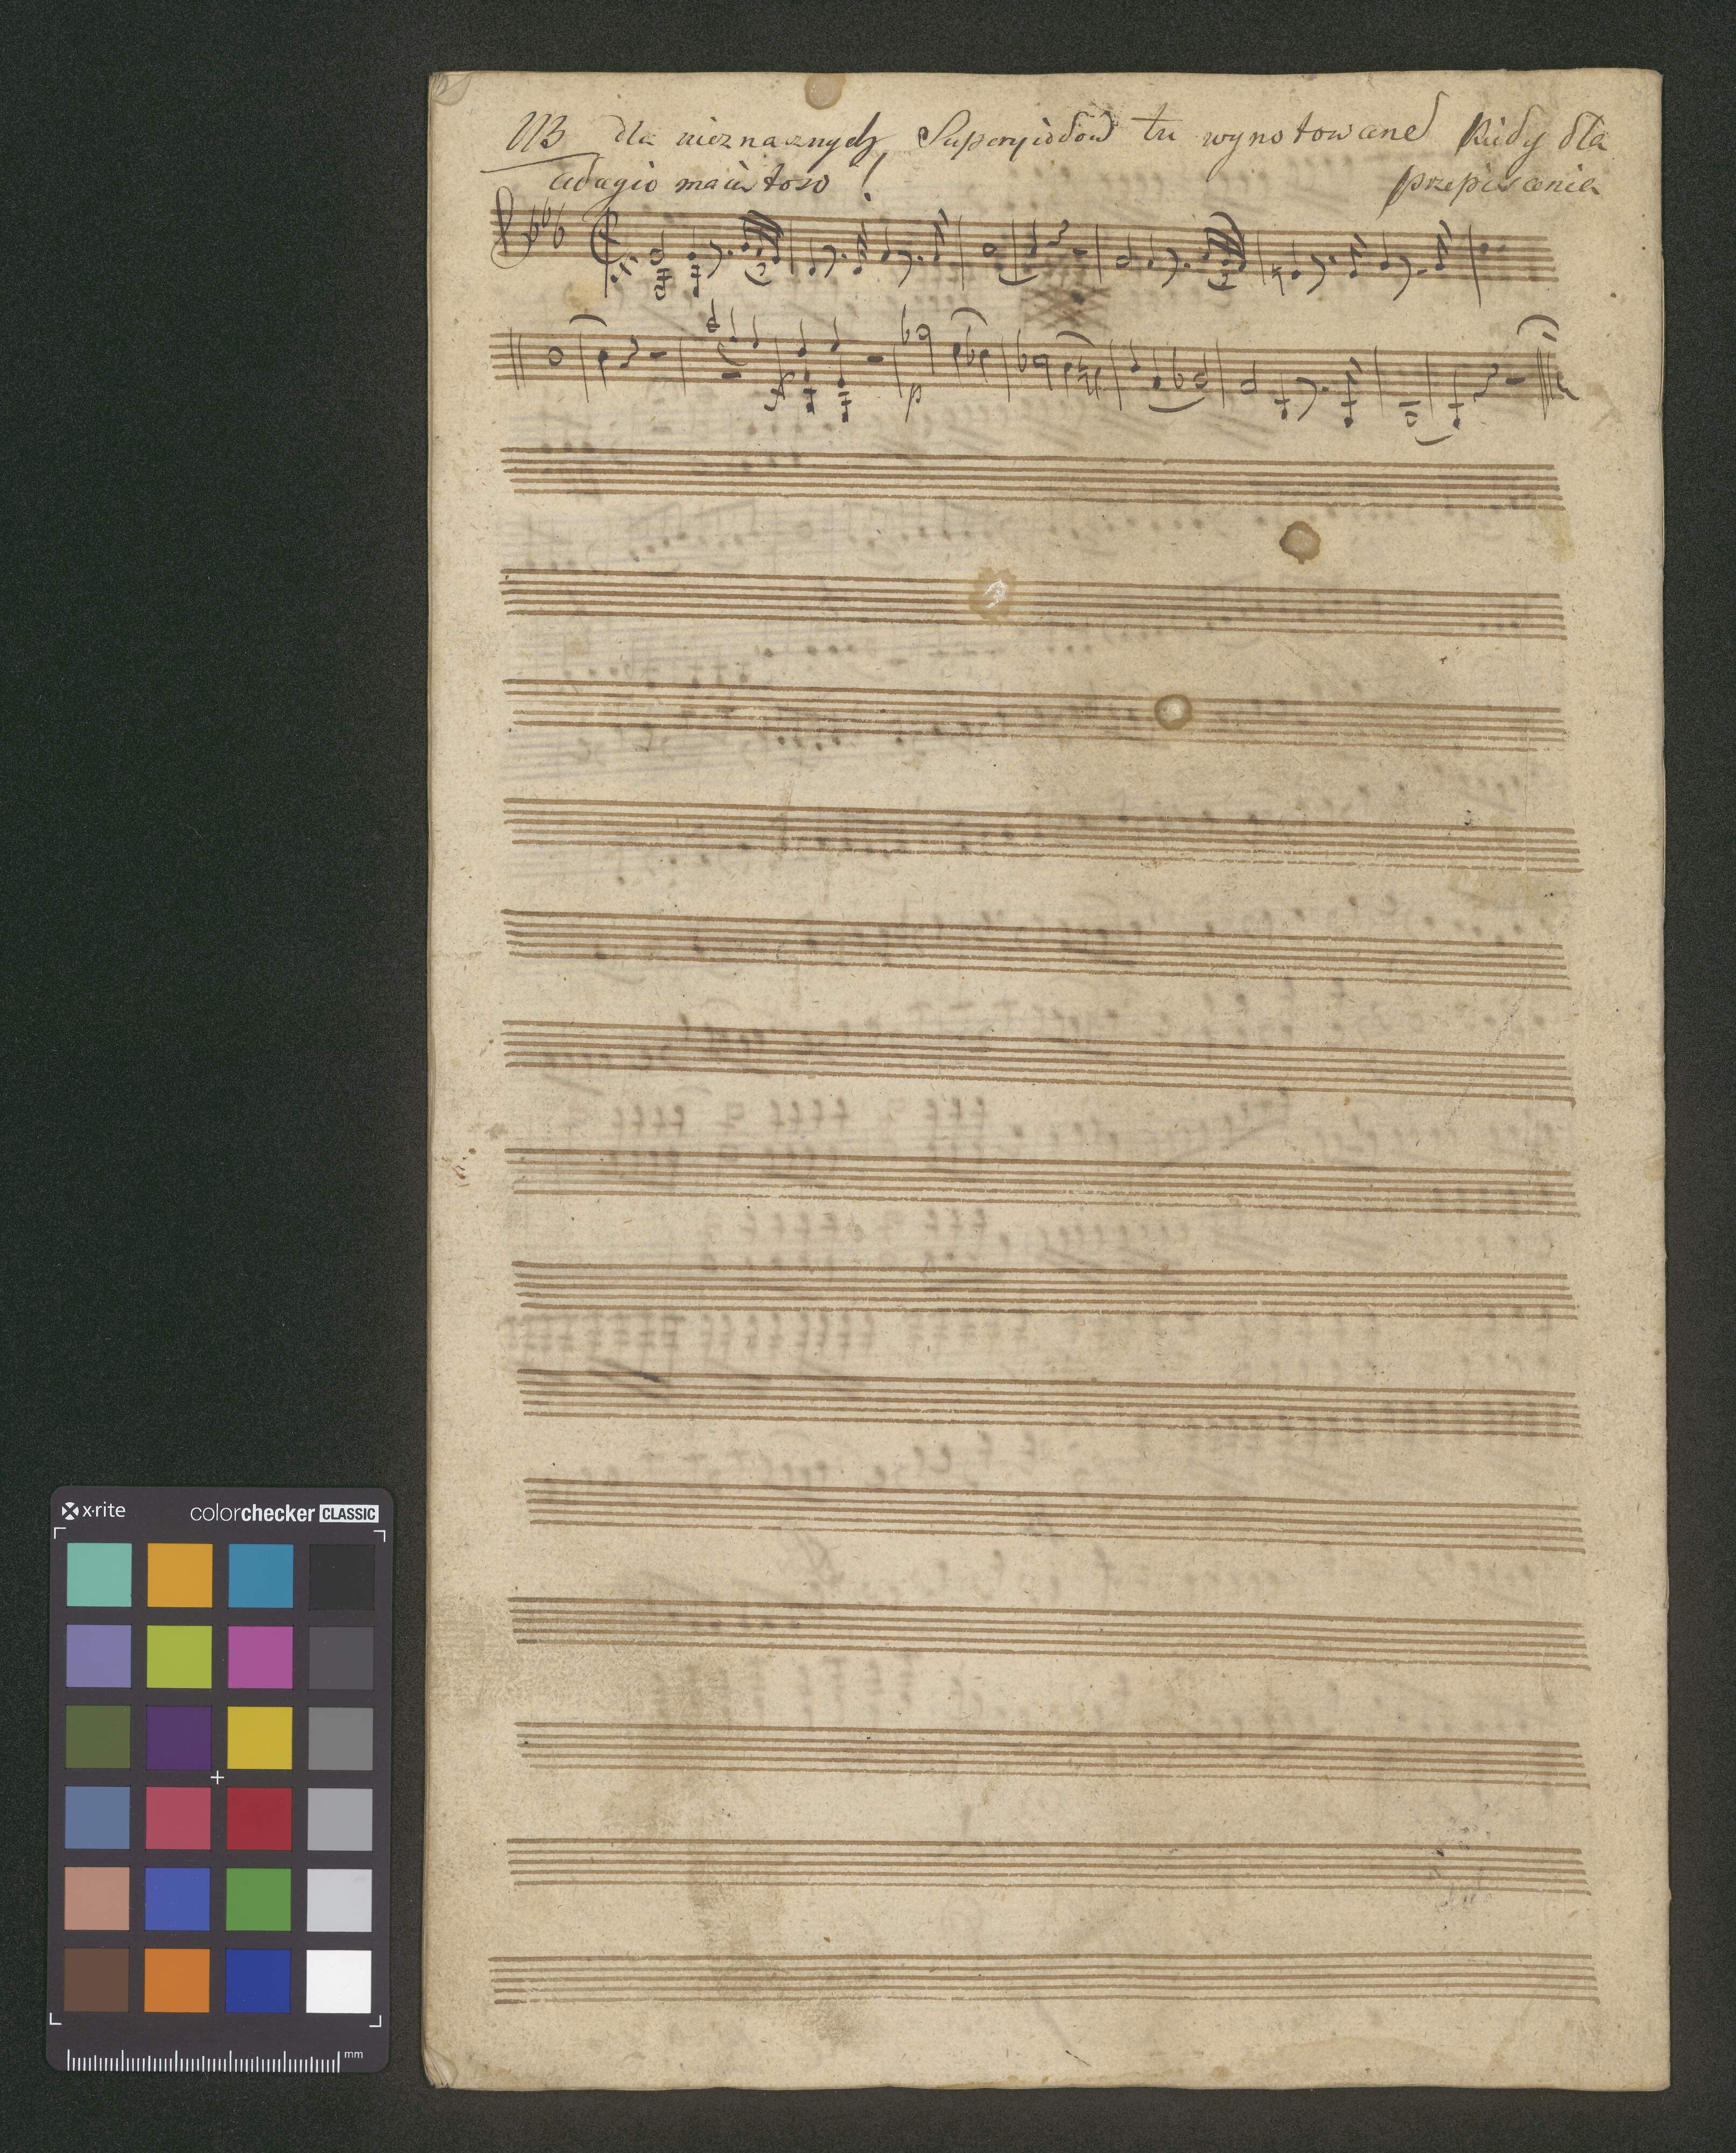 NB dla nieznacznych Superyiodow tu wynotowane Rudy dla
adagio maiestoso
przepisania
f
p
x·rite colorchecker CLASSIC
mm